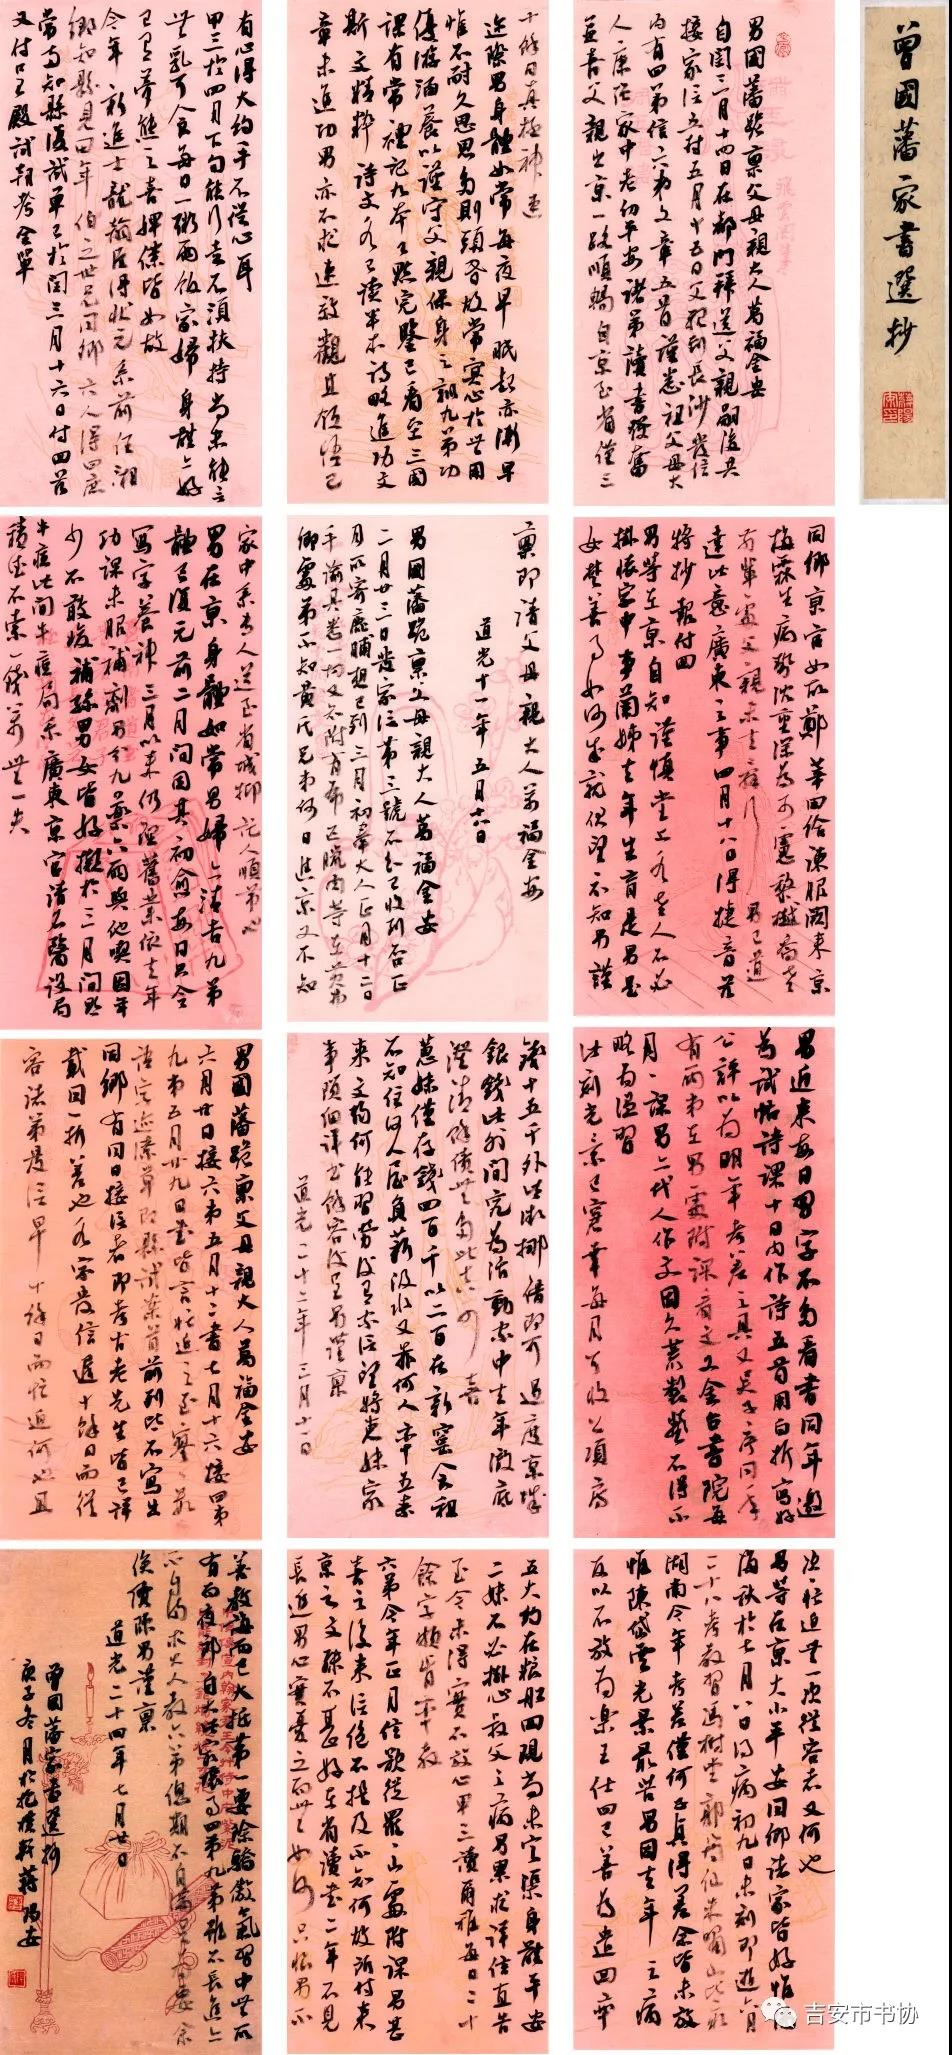 曾國藩家書選抄
男國藩跪稟父母親大人萬福金安
自閏三月十四日在都門拜送父親嗣後共
接家信五封五月十五日父親到長沙發信
內有四弟信六弟文章五首謹悉祖父母大
人康強家中老幼平安諸弟讀書發奮
並喜父親出京一路順暢自京至省僅三
十餘日真極神速
邇際男身體如常每夜早眠起亦漸早
惟不耐久思思多則頭昏故常冥心於無用
優游涵養以謹守父親保身之訓九弟功
課有常禮記九本已點完鑒已看至三國
斯文精粹詩文各已讀半本詩略進功文
章未進功男亦不求速效觀其領悟已
有心得大約手不從心耳
甲三於四月下旬能行走不須扶持尚未能言
無乳可食每日一粥兩飯家婦身體亦好
已有夢熊之喜婢僕皆如故
今年新進士龍翰臣得狀元系前任湘
鄉知縣見田年伯之世兄同鄉六人得四庶
常兩知縣復試單已於閏三月十六日付四茲
又付呈殿試朝考全單
同鄉京官如故鄭莘田給諫服闋來京
梅霖生病勢沈重深為可慮黎樾喬老
前輩處父親未去辭行男已道
達此意廣東之事四月十八日得捷音茲
將抄報付四
男等在京自知謹慎堂上各老人不必
掛懷家中事蘭姊去年生育是男是
女楚善事如何成就伏望示知男謹
稟即請父母親大人萬福金安
道光十一年五月十八日
男國藩跪稟父母親大人萬福金安
二月廿三日發家信第三號不知已收到否正
月所寄鹿脯想已到三月初奉大人正月十二日
手諭具悉一切又知附有布疋臘肉等在黃弗
卿處第不知黃氏兄弟何日進京又不知
家中系專人送至省城抑託人順帶也
男在京身體如常男婦亦清吉九弟
體已復元前二月間因其初愈每日只令
寫字養神三月以來仍理舊業依去年
功課未服補劑男分九藥六兩與他吃因年
少不敢峻補孫男女皆好擬於三月間點
牛痘此間牛痘局系廣東京官請名醫設局
積德不索一錢萬無一失
男近來每日習字不多看書同年邀
為試帖詩課十日內作詩五首用白折寫好
公評以為明年考差之具又吳子序同年
有兩弟在男處附課看文又金台書院每
月一課男亦代人作文因久荒製藝不得不
略為溫習
此刻光景已窘幸每月可收公項房
錢十五千外些微挪借即可過度京城
銀錢比外間究為活動家中去年徹底
澄清餘債無多此真可喜
蕙妹僅存錢四百千以二百在新窯食租
不知住何人屋負薪汲水又靠何人率五素
來文弱何能習勞後有家信望將蕙妹家
事瑣細詳書餘容後呈男謹稟
道光二十二年三月十一日
男國藩跪稟父母親大人萬福金安
六月廿日接六弟五月十二書七月十六接四弟
九弟五月廿九日書皆言忙迫之至寥寥數
語字跡潦草即縣試案首前列皆不寫出
同鄉有同日接信者即考古老先生皆已詳
載同一折差也各家發信遲十餘日而從
容諸弟發信早十餘日而忙迫何也且
次忙迫無一次從容者又何也
男等在京大小平安同鄉諸家皆好惟湯
海秋於七月八日得病初九日未刻即逝六月
二十八考教習馮樹堂郭筠仙朱嘯山皆取
湖南今年考差僅何子貞得差余皆未放
惟陳岱雲光景最苦男因去年之病
反以不放為樂王仕四已善為遣回率
五大約在糧船回現尚未定渠身體平安
二妹不必掛心叔父之病男累求詳信直告
至今未得實不放心甲三讀爾雅每日二十
餘字頗肯率教
六弟今年正月信欲從羅羅山處附課男甚
喜之後來信絕不提及不知何故所付來
京之文殊不甚好在省讀書二年不見
長進男心實憂之而無如何只恨男不
善教誨而已大抵第一要除驕傲氣習中無所
有而夜郎自大此最壞事四弟九弟雖不長進亦
不自滿求大人教六弟總期不自滿足為要余
俟續陳男謹稟
道光二十四年七月廿日
曾國藩家書選抄
庚子冬月於抱樸軒蔣陽安
吉安市书协